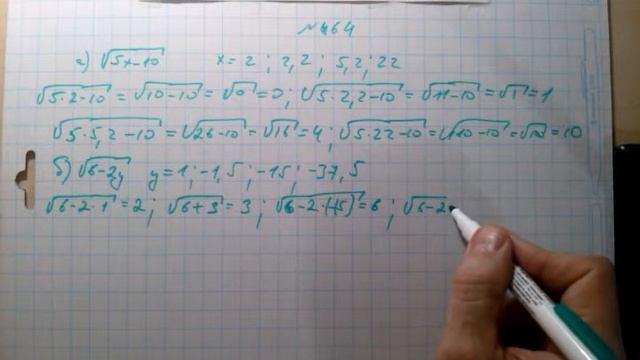 №464
а) √5x-10 x = 2 ; 2,2 ; 5,2 ; 22
√5·2-10 = √10-10 = √0 = 0 ; √5·2,2-10 = √11-10 = √1 = 1
√5·5,2-10 = √26-10 = √16 = 4 ; √5·22-10 = √110-10 = √100 = 10
б) √6-2y y = 1 ; -1,5 ; -15 ; -37,5
√6-2·1 = 2 ; √6+3 = 3 ; √6-2·(-15) = 6 ; √6-2